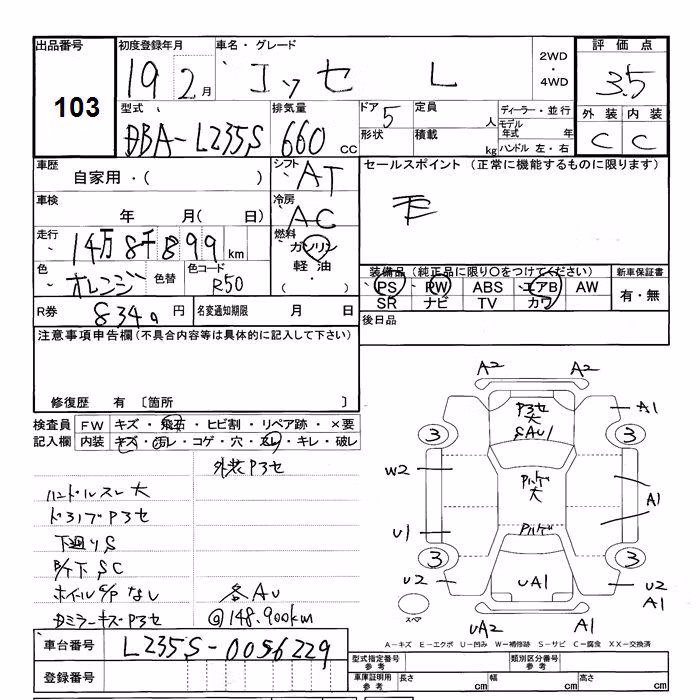 出品番号
初度登録年月
車名・グレード
評価点
103
19 2月
エッセ L
2WD
・
4WD
3.5
型式
DBA-L235S
排気量
660 CC
ドア 5
定員 人
ディーラー・並行
モデル年式 年
形状
積載 kg
ハンドル 左・右
外装 内装
C C
車歴
自家用・( )
シフト AT
セールスポイント (正常に機能するものに限ります)
車検
年 月( 日)
冷房 AC
走行
14万8千 99 km
燃料
ガソリン
軽油
( ・ )
色
オレンジ
色替
色コード R50
装備品(純正品に限り○をつけてください)
新車保証書
PS PW ABS エアB AW
SR ナビ TV カワ
有・無
R券
8340 円
名変通知期限 月 日
後日品
注意事項申告欄(不具合内容等は具体的に記入して下さい)
修復歴 有 〔箇所 〕
検査員
記入欄
FW キズ・飛石・ヒビ割・リペア跡・×要
内装 キズ・汚レ・コゲ・穴・スレ・キレ・破レ
外装Pヨセ
ハンドルスレ大
ドアノブPヨセ
下廻りS
B/F下SC
ホイルC/Pなし
各AU
Dミラーキズ Pヨセ
@148,900km
A2 A2
Pヨセ
大
SAU1
A1
3 3
W2
Pハゲ
大
A1
U1
Pハゲ
3 3
U2
UA1
U2
A1
スペア
UA2
A1
A-キズ E-エクボ U-凹み W-補修跡 S-サビ C-腐食 XX-交換済
車台番号
L235S-0056229
登録番号
型式指定番号
参考
類別区分番号
参考
車庫証明用
参考
長さ cm
幅 cm
高さ cm